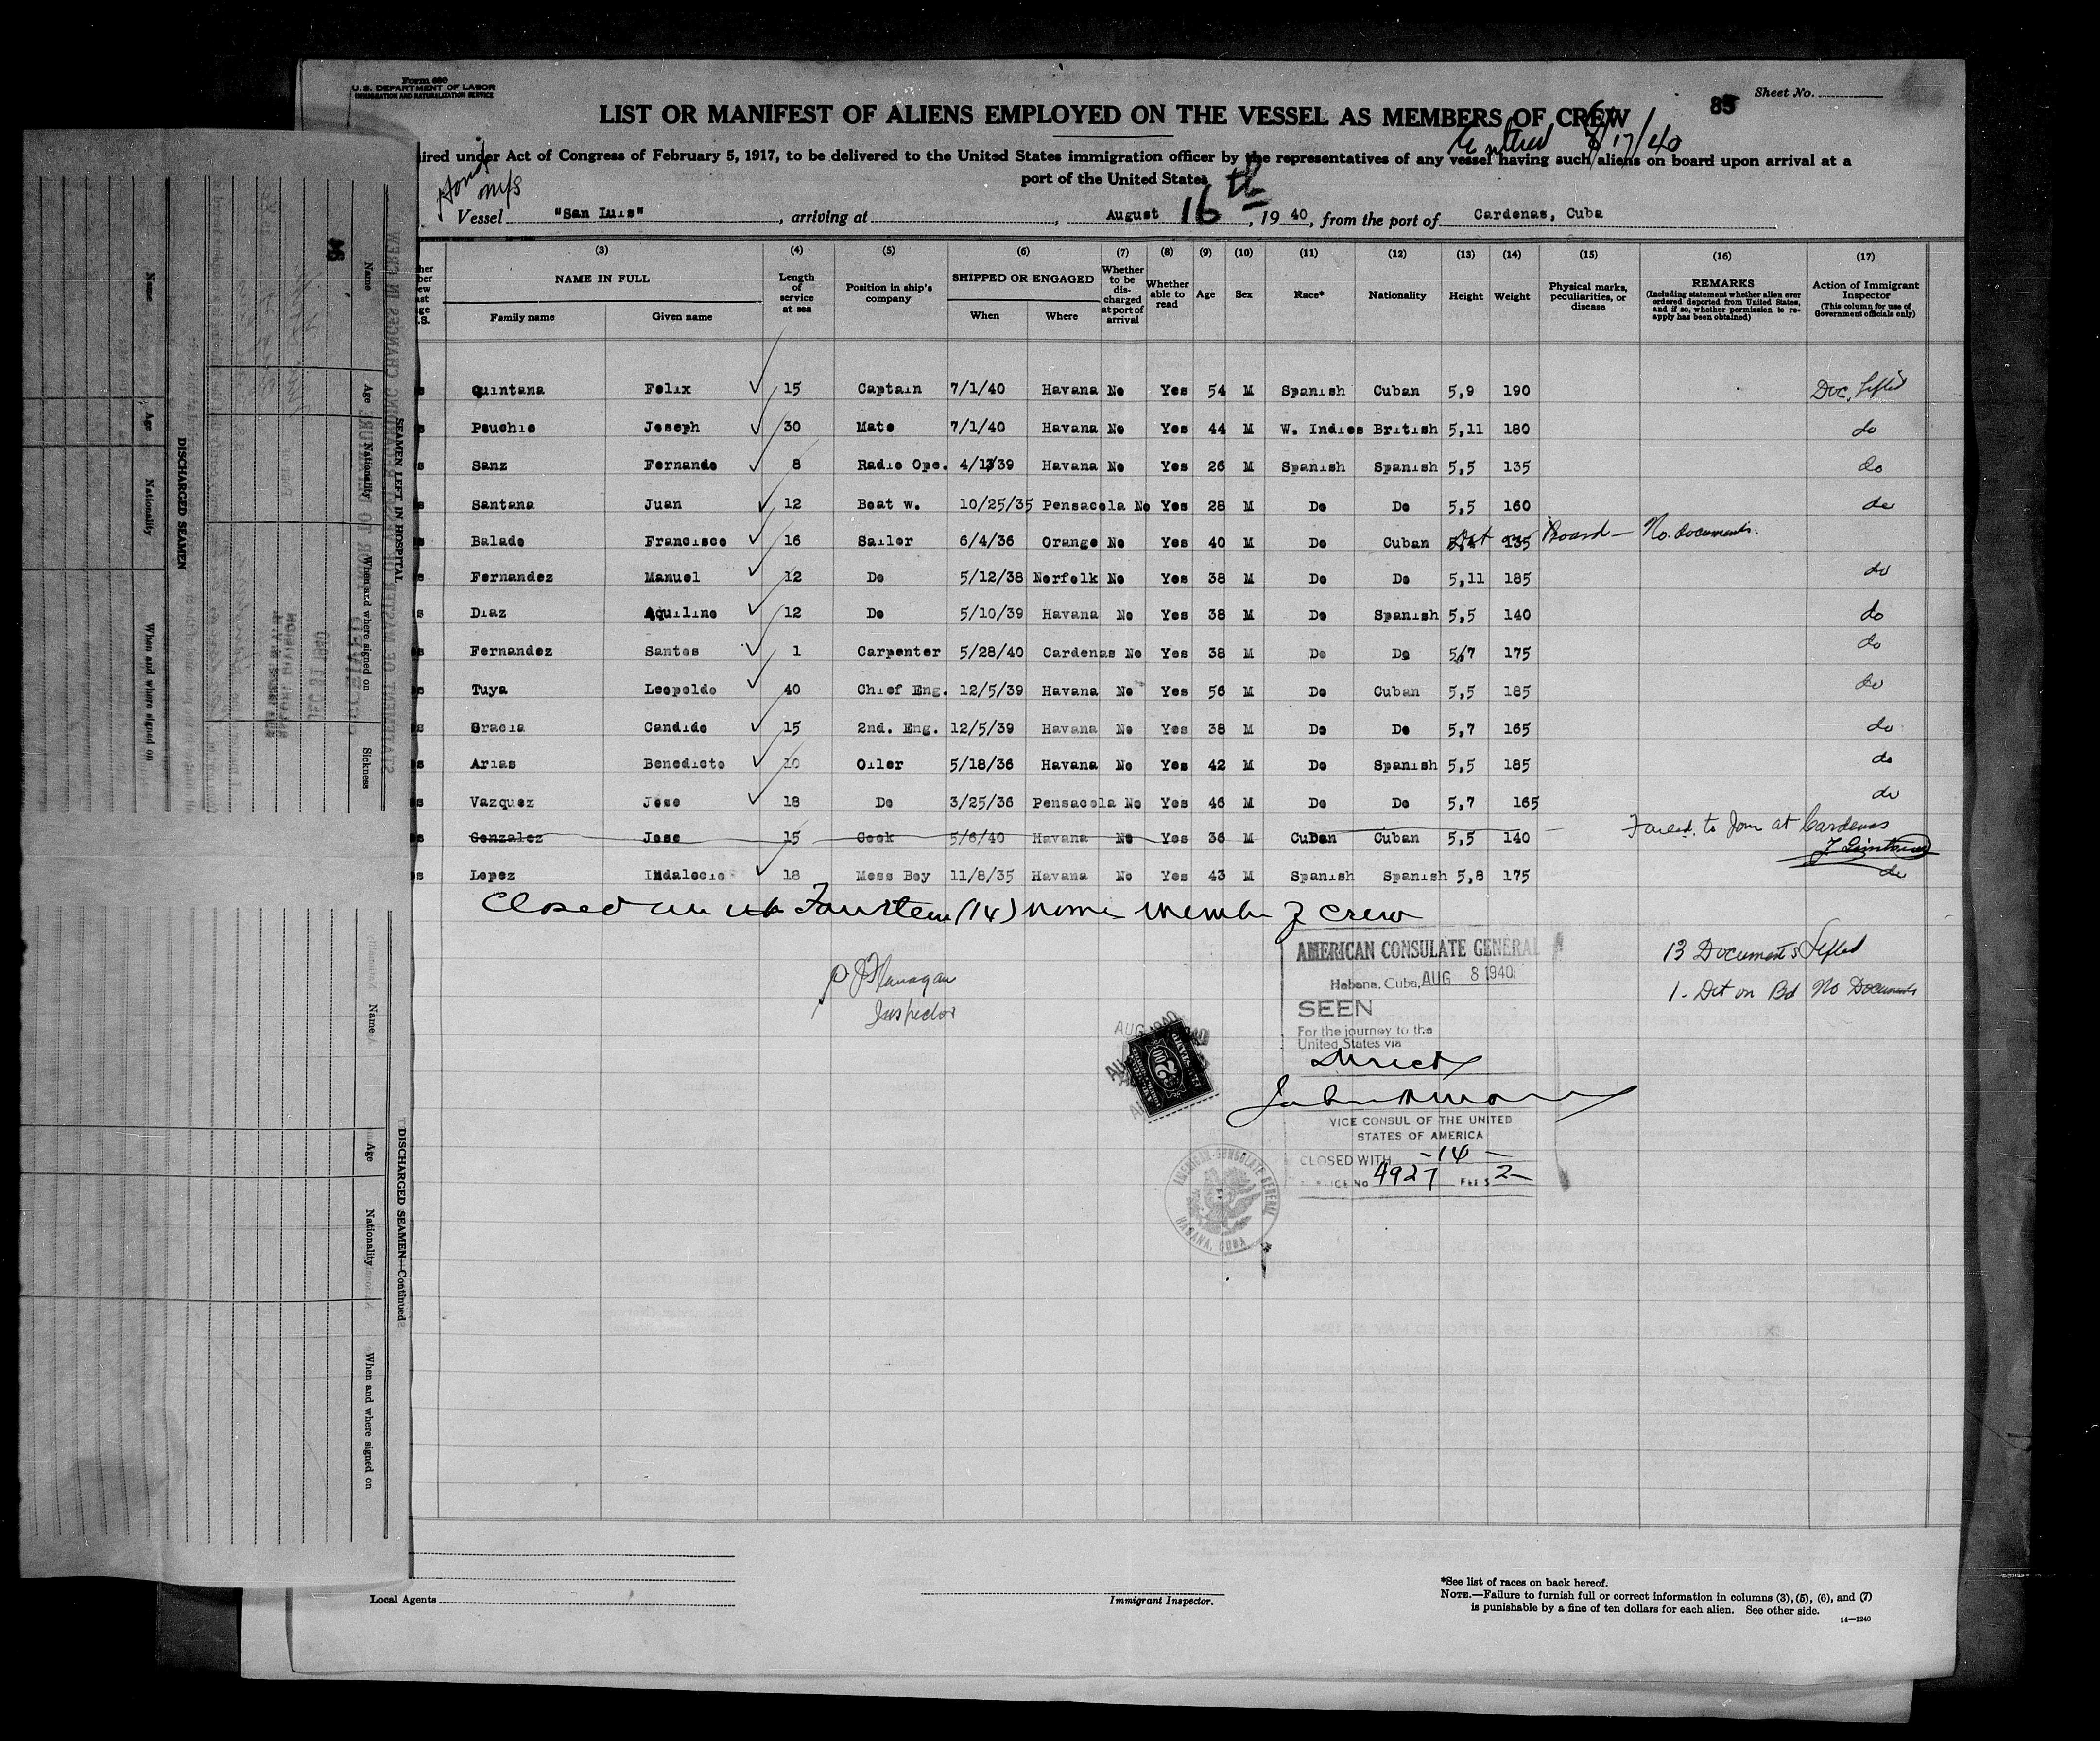 Form 680
U.S. DEPARTMENT OF LABOR
IMMIGRATION AND NATURALIZATION SERVICE
Sheet No.
85
LIST OR MANIFEST OF ALIENS EMPLOYED ON THE VESSEL AS MEMBERS OF CREW
Entered 8/17/40
ired under Act of Congress of February 5, 1917, to be delivered to the United States immigration officer by the representatives of any vessel having such aliens on board upon arrival at a
port of the United States
Vessel "San Luis", arriving at , August 16th, 1940, from the port of Cardenas, Cuba
(3) (4) (5) (6) (7) (8) (9) (10) (11) (12) (13) (14) (15) (16) (17)
NAME IN FULL
Family name Given name
Length of service at sea
Position in ship's company
SHIPPED OR ENGAGED
When Where
Whether to be discharged at port of arrival
Whether able to read
Age
Sex
Race*
Nationality
Height
Weight
Physical marks, peculiarities, or disease
REMARKS
(Including statement whether alien ever ordered deported from United States, and if so, whether permission to re-apply has been obtained)
Action of Immigrant Inspector
(This column for use of Government officials only)
Quintana Felix 15 Captain 7/1/40 Havana No Yes 54 M Spanish Cuban 5,9 190 Doc. Lifted
Pouchie Joseph 30 Mate 7/1/40 Havana No Yes 44 M W. Indies British 5,11 180 do
Sanz Fernando 8 Radio Ope. 4/13/39 Havana No Yes 26 M Spanish Spanish 5,5 135 do
Santana Juan 12 Boat w. 10/25/35 Pensacola No Yes 28 M Do Do 5,5 160 do
Balado Francisco 16 Sailor 6/4/36 Orange No Yes 40 M Do Cuban 135 Det on Board — No documents.
Fernandez Manuel 12 Do 5/12/38 Norfolk No Yes 38 M Do Do 5,11 185 do
Diaz Aquilino 12 Do 5/10/39 Havana No Yes 38 M Do Spanish 5,5 140 do
Fernandez Santos 1 Carpenter 5/28/40 Cardenas No Yes 38 M Do Do 5,7 175 do
Tuya Leopoldo 40 Chief Eng. 12/5/39 Havana No Yes 56 M Do Cuban 5,5 185 do
Gracia Candido 15 2nd. Eng. 12/5/39 Havana No Yes 38 M Do Do 5,7 165 do
Arias Benedicto 10 Oiler 5/18/36 Havana No Yes 42 M Do Spanish 5,5 185 do
Vazquez Jose 18 Do 3/25/36 Pensacola No Yes 46 M Do Do 5,7 165 do
Gonzalez Jose 15 Cook 5/6/40 Havana No Yes 36 M Cuban Cuban 5,5 140 Failed to Join at Cardenas
Lopez Indalecio 18 Mess Boy 11/8/35 Havana No Yes 43 M Spanish Spanish 5,8 175 do
Closed Fourteen (14) crew
13 Documents Lifted
1 - Det on Bd No Documents
P J Flanagan
Inspector
AMERICAN CONSULATE GENERAL
Habana, Cuba, AUG 8 1940
SEEN
For the journey to the
United States via
Direct
VICE CONSUL OF THE UNITED
STATES OF AMERICA
CLOSED WITH -14-
4927 FEE $ 2-
AMERICAN CONSULATE GENERAL
HABANA, CUBA
Local Agents
Immigrant Inspector.
*See list of races on back hereof.
NOTE.—Failure to furnish full or correct information in columns (3), (5), (6), and (7)
is punishable by a fine of ten dollars for each alien. See other side.
14—1240
SEAMEN LEFT IN HOSPITAL
Name Age Nationality When and where signed on Sickness
DISCHARGED SEAMEN
Name Age Nationality When and where signed on
DISCHARGED SEAMEN—Continued
Name Age Nationality When and where signed on